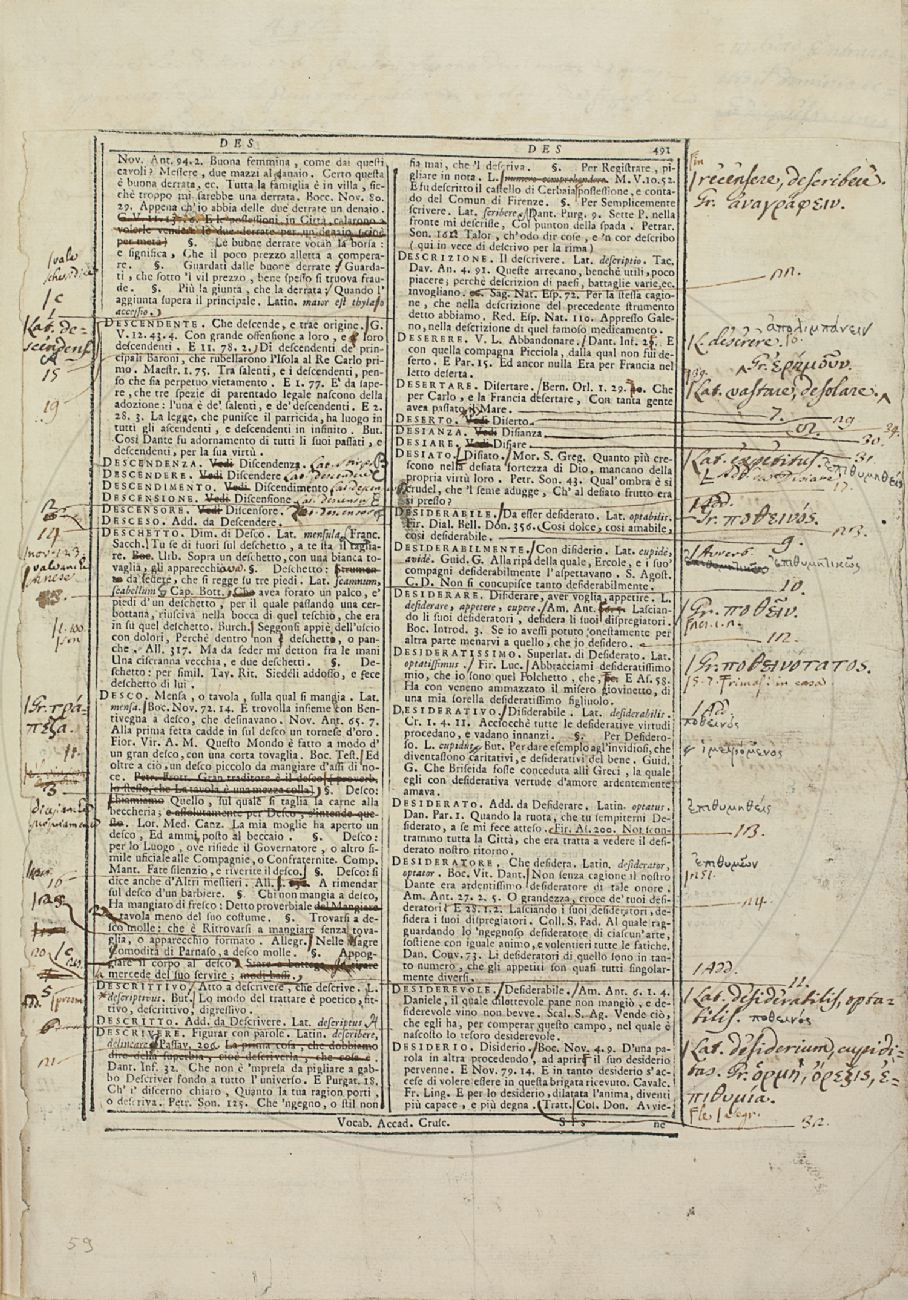 DES
DES 491
Nov. Ant. 94.2. Buona femmina, come dai questi
cavoli? Messere, due mazzi al danaio. Certo questa
è buona derrata, ec. Tutta la famiglia è in villa, sic-
chè troppo mi sarebbe una derrata. Bocc. Nov. 80.
29. Appena ch'io abbia delle due derrate un denaio.
G. V. 11. E le possessioni, in Città, calarono a
volerle vendere le due derrate per un denaio
per metà) §. Le buone derrate votan la borsa:
e significa, Che il poco prezzo alletta a compera-
re. §. Guardati dalle buone derrate / Guarda-
ti, che sotto 'l vil prezzo, bene spesso si truova frau-
de. §. Più la giunta, che la derrata: Quando l'
aggiunta supera il principale. Latin. maior est thylaso
accessio.
DESCENDENTE. Che descende, e trae origine. G.
V. 12. 43. 4. Con grande offensione a loro, e a' loro
descendenti. E 11. 78. 2. Di descendenti de' prin-
cipali Baroni, che rubellarono l'Isola al Re Carlo pri-
mo. Maestr. 1. 75. Tra salenti, e i descendenti, pen-
so che sia perpetuo vietamento. E 1. 77. E' da sape-
re, che tre spezie di parentado legale nascono della
adozione: l'una è de' salenti, e de' descendenti. E 2.
28. 3. La legge, che punisce il parricida, ha luogo in
tutti gli ascendenti, e descendenti in infinito. But.
Così Dante fu adornamento di tutti li suoi passati, e
descendenti, per la sua virtù.
DESCENDENZA. Vedi Discendenza.
DESCENDERE. Vedi Discendere
DESCENDIMENTO. Vedi Discendimento
DESCENSIONE. Vedi Discensione
DESCENSORE. Vedi Discensore.
DESCESO. Add. da Descendere.
DESCHETTO. Dim. di Desco. Lat. mensula. Franc.
Sacch. Tu se di fuori sul deschetto, a te sta il taglia-
re. Boc. Urb. Sopra un deschetto, con una bianca to-
vaglia, gli apparecchiò. §. Deschetto:
da sedere, che si regge su tre piedi. Lat. scamnum,
scabellum Cap. Bott. avea forato un palco, e'
piedi d'un deschetto, per il quale passando una cer-
bottana, riusciva nella bocca di quel teschio, che era
in su quel deschetto. Burch. Seggonsi appiè dell'uscio
con dolori, Perchè dentro non è deschetto, o pan-
che. All. 317. Ma da seder mi detton fra le mani
Una ciscranna vecchia, e due deschetti. §. De-
schetto: per simil. Tay. Rit. Siedèli addosso, e fece
deschetto di lui.
DESCO. Mensa, o tavola, sulla qual si mangia. Lat.
mensa. Boc. Nov. 72. 14. E trovolla insieme con Ben-
tivegna a desco, che desinavano. Nov. Ant. 65. 7.
Alla prima fetta cadde in sul desco un tornese d'oro.
Fior. Vir. A. M. Questo Mondo è fatto a modo d'
un gran desco, con una corta tovaglia. Boc. Test. Ed
oltre a ciò, un desco piccolo da mangiare d'assi di no-
ce. Gran traditore è il desco
lo stesso, che La tavola è una mezza colla) §. Desco:
chiamiamo Quello, sul quale si taglia la carne alla
beccheria;
Lor. Med. Canz. La mia moglie ha aperto un
desco, Ed ammi posto al beccaio. §. Desco:
per lo Luogo, ove risiede il Governatore, o altro si-
mile uficiale alle Compagnie, o Confraternite. Comp.
Mant. Fate silenzio, e riverite il desco. §. Desco: si
dice anche d'Altri mestieri. All. A rimendar
sul desco d'un barbiere. §. Chi non mangia a desco,
Ha mangiato di fresco: Detto proverbiale da Mangiare
a tavola meno del suo costume. §. Trovarsi a de-
sco molle: che è Ritrovarsi a mangiare senza tova-
glia, o apparecchio formato. Allegr. Nelle Sagre
Comodità di Parnaso, a desco molle. §. Appog-
giare il corpo al desco
mercede del suo servire; modi bassi.
DESCRITTIVO. Atto a descrivere, che descrive. L.
descriptivus. But. Lo modo del trattare è poetico, fit-
tivo, descrittivo, digressivo.
DESCRITTO. Add. da Descrivere. Lat. descriptus.
DESCRIVERE. Figurar con parole. Latin. describere,
delineare. Passav. 206. La prima cosa, che dobbiamo
dire della superbia, cioè descriverla, che cosa è.
Dant. Inf. 32. Che non è 'mpresa da pigliare a gab-
bo Descriver fondo a tutto l'universo. E Purgat. 18.
Ch' i' discerno chiaro, Quanto la tua ragion porti,
o descriva. Petr. Son. 125. Che 'ngegno, o stil non
sia mai, che 'l descriva. §. Per Registrare, pi-
gliare in nota. L. numero comprehendere. M. V. 10. 52.
E fu descritto il castello di Cerbaia possessione, e conta-
do del Comun di Firenze. §. Per Semplicemente
scrivere. Lat. scribere. Dant. Purg. 9. Sette P. nella
fronte mi descrisse, Col punton della spada. Petrar.
Son. 161. Talor, ch'odo dir cose, e 'n cor describo
(qui in vece di descrivo per la rima)
DESCRIZIONE. Il descrivere. Lat. descriptio. Tac.
Dav. An. 4. 91. Queste arrecano, benchè utili, poco
piacere; perchè descrizion di paesi, battaglie varie, ec.
invogliano. Sag. Nat. Esp. 72. Per la stessa cagio-
ne, che nella descrizione del precedente strumento
detto abbiamo. Red. Esp. Nat. 110. Appresso Gale-
no, nella descrizione di quel famoso medicamento.
DESERERE. V. L. Abbandonare. Dant. Inf. 26. E
con quella compagna Picciola, dalla qual non fui de-
serto. E Par. 15. Ed ancor nulla Era per Francia nel
letto deserta.
DESERTARE. Disertare. Bern. Orl. 1. 29. Che
per Carlo, e la Francia desertare, Con tanta gente
avea passato il Mare.
DESERTO. Vedi Diserto.
DESIANZA. Vedi Disianza.
DESIARE. Vedi Disiare.
DESIATO. Disiato. Mor. S. Greg. Quanto più cre-
scono nella desiata fortezza di Dio, mancano della
propria virtù loro. Petr. Son. 43. Qual'ombra è sì
crudel, che 'l seme adugge, Ch' al desiato frutto era
sì presso?
DESIDERABILE. Da esser desiderato. Lat. optabilis.
Fir. Dial. Bell. Don. 356. Così dolce, così amabile,
così desiderabile.
DESIDERABILMENTE. Con disiderio. Lat. cupidè,
avidè. Guid. G. Alla ripa della quale, Ercole, e i suo'
compagni desiderabilmente l'aspettavano. S. Agost.
C. D. Non si concupisce tanto desiderabilmente.
DESIDERARE. Disiderare, aver voglia, appetire. L.
desiderare, appetere, cupere. Am. Ant. Lascian-
do li suoi desideratori, desidera li suoi dispregiatori.
Boc. Introd. 3. Se io avessi potuto onestamente per
altra parte menarvi a quello, che io desidero.
DESIDERATISSIMO. Superlat. di Desiderato. Lat.
optatissimus. Fir. Luc. Abbracciami desideratissimo
mio, che io sono quel Folchetto, che, E As. 58.
Ha con veneno ammazzato il misero giovinetto, di
una mia sorella desideratissimo figliuolo.
DESIDERATIVO. Disiderabile. Lat. desiderabilis.
Cr. 1. 4. 11. Acciocchè tutte le desiderative virtudi
procedano, e vadano innanzi. §. Per Desidero-
so. L. cupidus. But. Per dare esemplo agl'invidiosi, che
diventassono caritativi, e desiderativi del bene. Guid.
G. Che Briseida fosse conceduta alli Greci, la quale
egli con desiderativa vertude d'amore ardentemente
amava.
DESIDERATO. Add. da Desiderare. Latin. optatus.
Dan. Par. 1. Quando la ruota, che tu sempiterni De-
siderato, a se mi fece atteso. Fir. As. 200. Noi scon-
trammo tutta la Città, che era tratta a vedere il desi-
derato nostro ritorno.
DESIDERATORE. Che desidera. Latin. desiderator,
optator. Boc. Vit. Dant. Non senza cagione il nostro
Dante era ardentissimo desideratore di tale onore.
Am. Ant. 27. 2. 5. O grandezza, croce de' tuoi desi-
deratori. E 28. 1. 2. Lasciando i suoi desideratori, de-
sidera i suoi dispregiatori. Coll. S. Pad. Al quale rag-
guardando lo 'ngegnoso desideratore di ciascun'arte,
sostiene con iguale animo, e volentieri tutte le fatiche.
Dan. Conv. 73. Li desideratori di quello sono in tan-
to numero, che gli appetiti son quasi tutti singolar-
mente diversi.
DESIDEREVOLE. Desiderabile. Am. Ant. 6. 1. 4.
Daniele, il quale dilottevole pane non mangiò, e de-
siderevole vino non bevve. Scal. S. Ag. Vende ciò,
che egli ha, per comperar questo campo, nel quale è
nascosto lo tesoro desiderevole.
DESIDERIO. Disiderio. Boc. Nov. 4. 9. D'una pa-
rola in altra procedendo, ad aprire il suo disiderio
pervenne. E Nov. 79. 14. E in tanto desiderio s'ac-
cese di volere essere in questa brigata ricevuto. Cavalc.
Fr. Ling. E per lo desiderio, dilatata l'anima, diventi
più capace, e più degna. Tratt. Col. Don. Avve-
Vocab. Accad. Crusc. ne
recensere, describere.
Gr. ἀναγράφειν.
ἀπολιμπάνειν
L. deserere.
Gr. ἐρημοῦν.
Lat. vastare, desolare.
Lat. expetitus.
Add.
Gr. ποθεινός.
Avverb.
ἐπιθυμητικῶς
Gr. ποθεῖν.
Gr. ποθεινότατος.
Add.
ποθεινός
ἱμειρόμενος
ἐπιθυμηθείς
ἐπιθυμῶν
Add.
Lat. desiderabilis, opta-
bilis. ποθεινός
Lat. desiderium, cupidi-
tas. Gr. ὁρμή, ὄρεξις, ἐ-
πιθυμία.
Lat. de-
scendens
15
19
14
Gr. τρά-
πεζα.
59